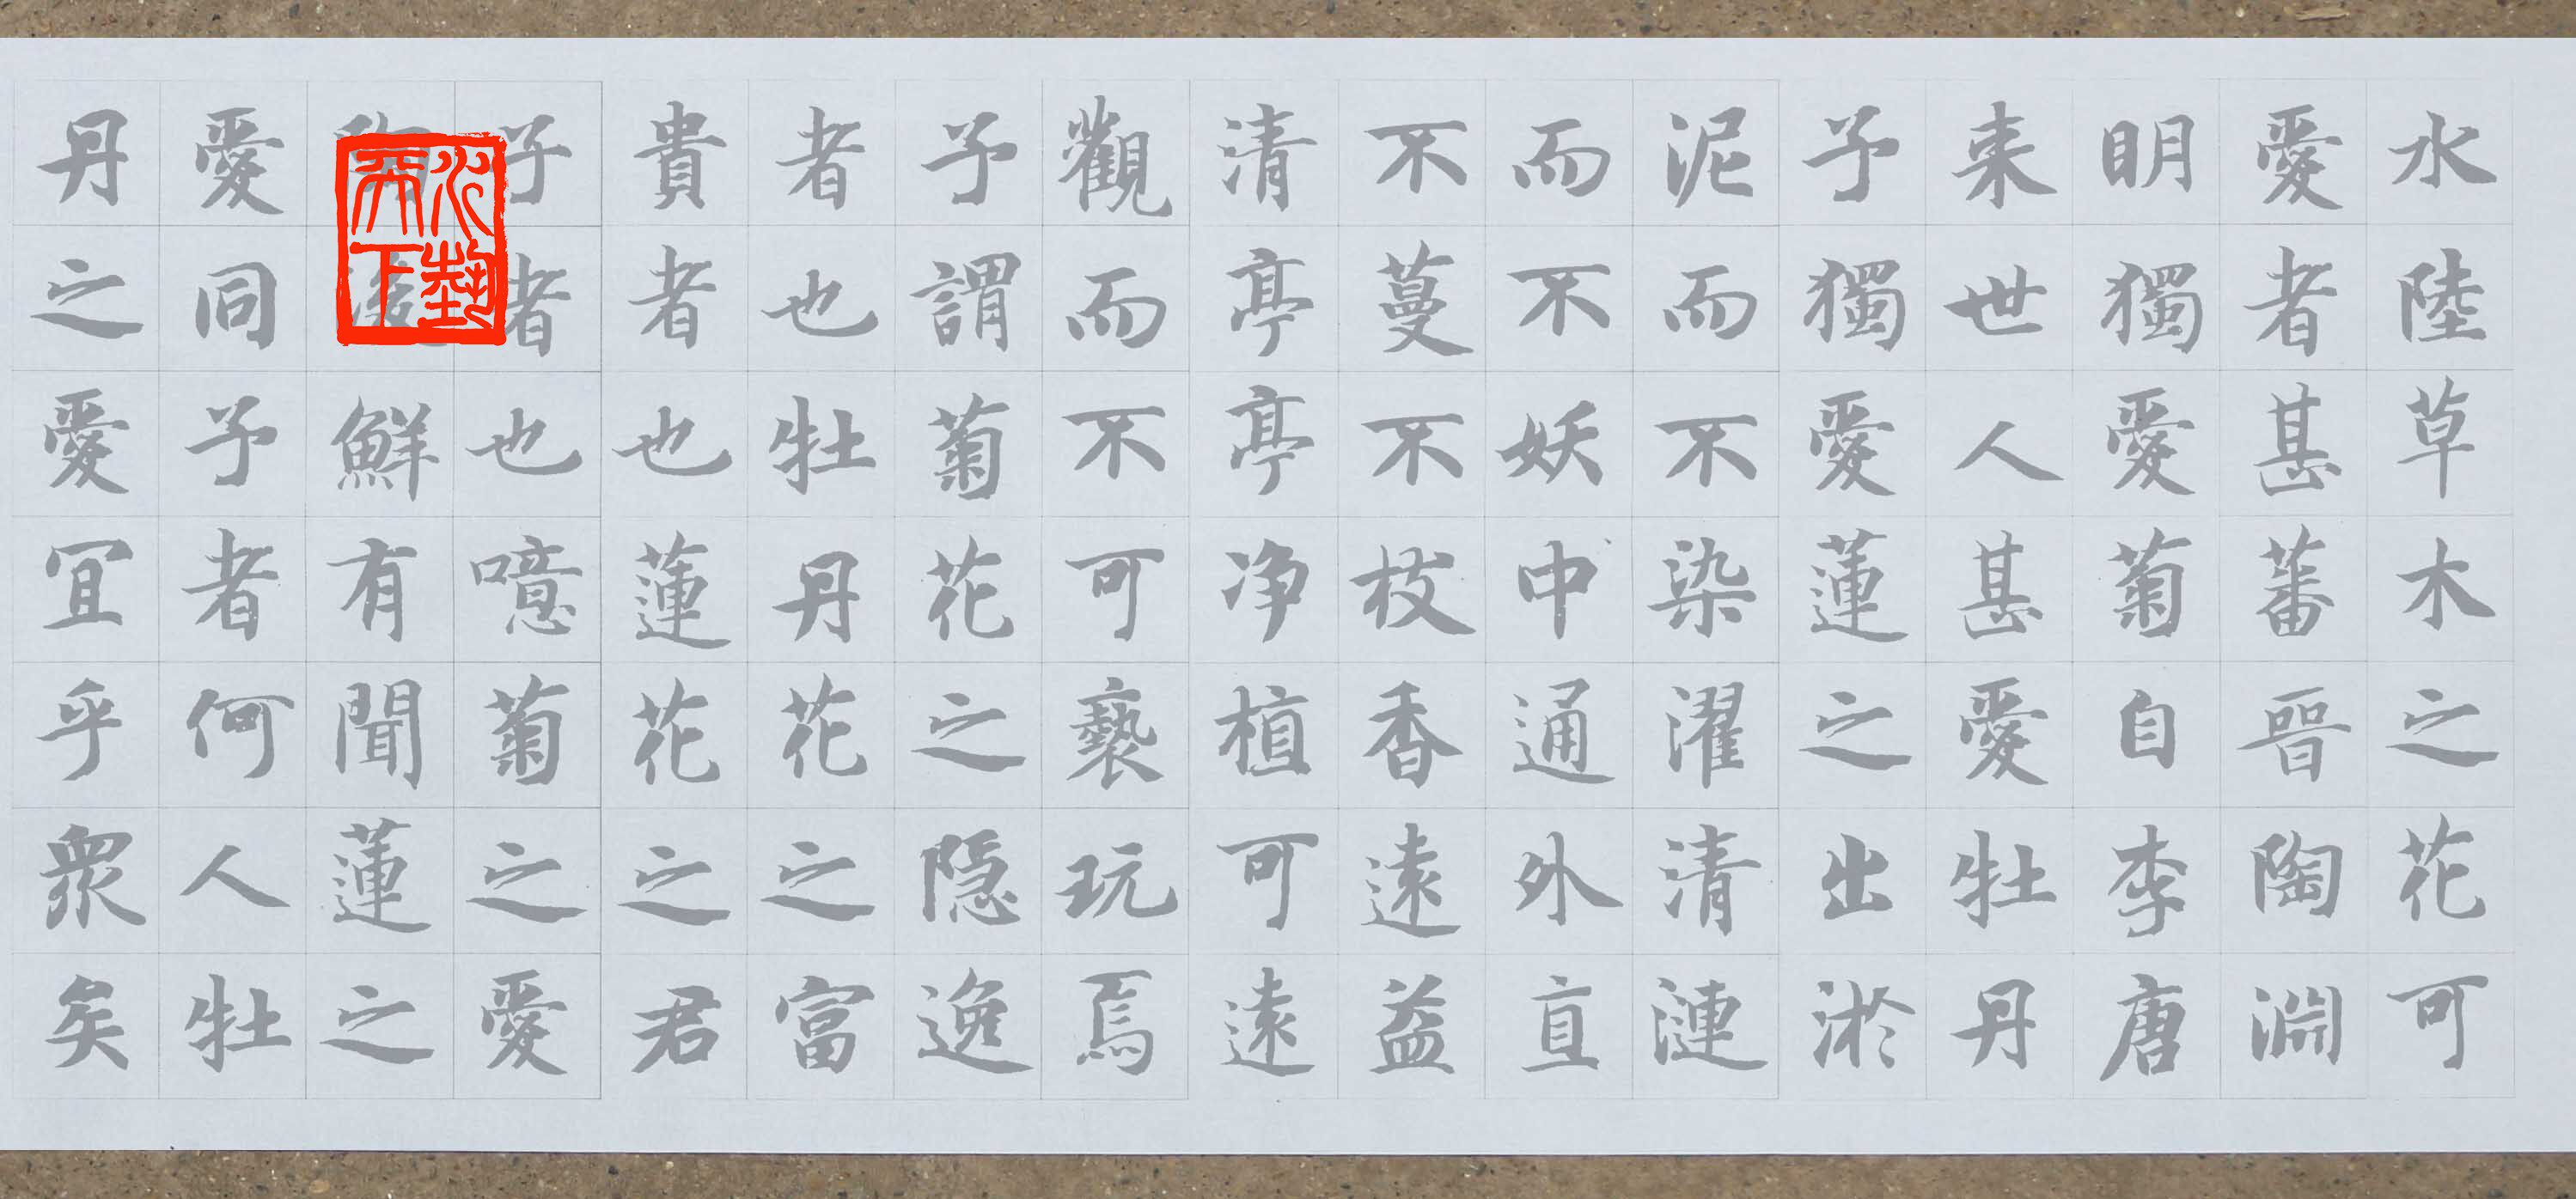 水陸草木之花可
愛者甚蕃晉陶淵
明獨愛菊自李唐
来世人甚愛牡丹
予獨愛蓮之出淤
泥而不染濯清漣
而不妖中通外直
不蔓不枝香遠益
清亭亭净植可遠
觀而不可褻玩焉
予謂菊花之隐逸
者也牡丹花之富
貴者也蓮花之君
子者也噫菊之愛
陶後鮮有聞蓮之
愛同予者何人牡
丹之愛宜乎眾矣
天下